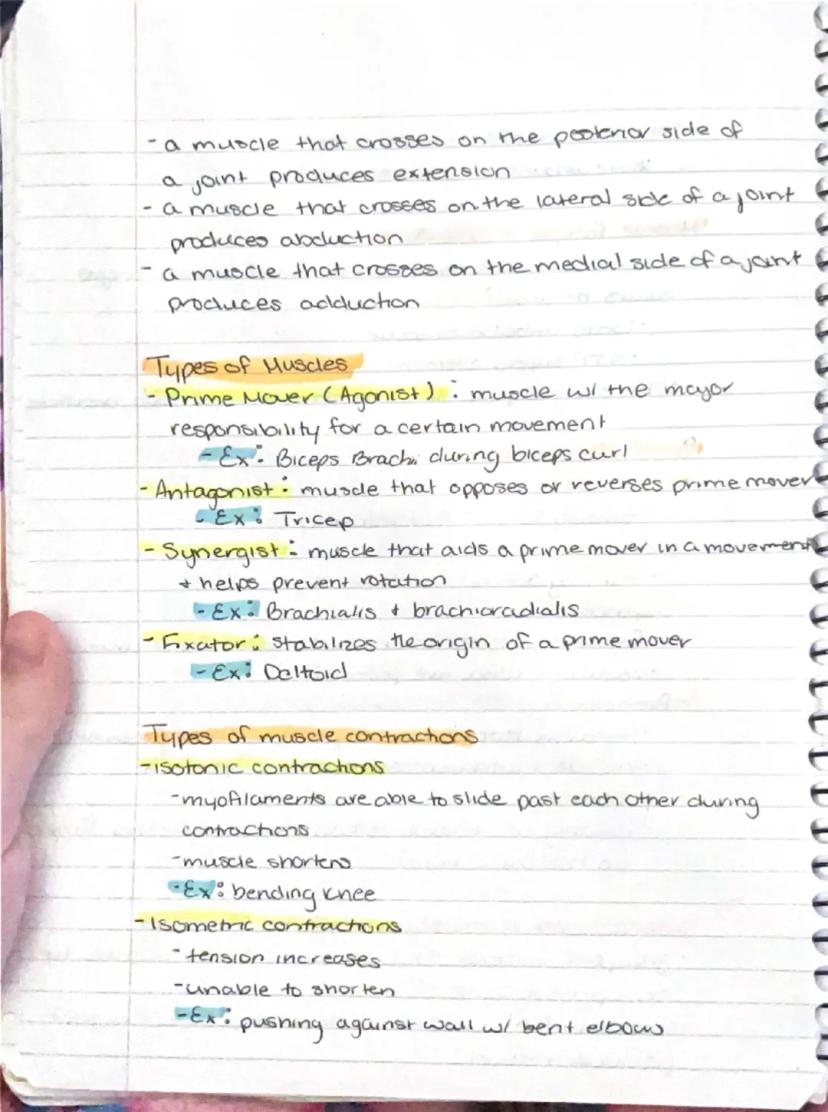 - a muscle that crosses on the posterior side of
a joint produces extension
- a muscle that crosses on the lateral side of a joint
produces abduction
- a muscle that crosses on the medial side of a joint
produces adduction
Types of Muscles
- Prime Mover (Agonist) : muscle w/ the major
responsibility for a certain movement
- Ex: Biceps Brachi during biceps curl
- Antagonist : muscle that opposes or reverses prime mover
- Ex: Tricep
- Synergist : muscle that aids a prime mover in a movement
+ helps prevent rotation
- Ex: Brachialis + brachioradialis
- Fixator : stabilizes the origin of a prime mover
- Ex: Deltoid
Types of muscle contractions
- isotonic contractions
- myofilaments are able to slide past each other during
contractions
- muscle shortens
- Ex: bending knee
- Isometric contractions
- tension increases
- unable to shorten
- Ex: pushing against wall w/ bent elbows